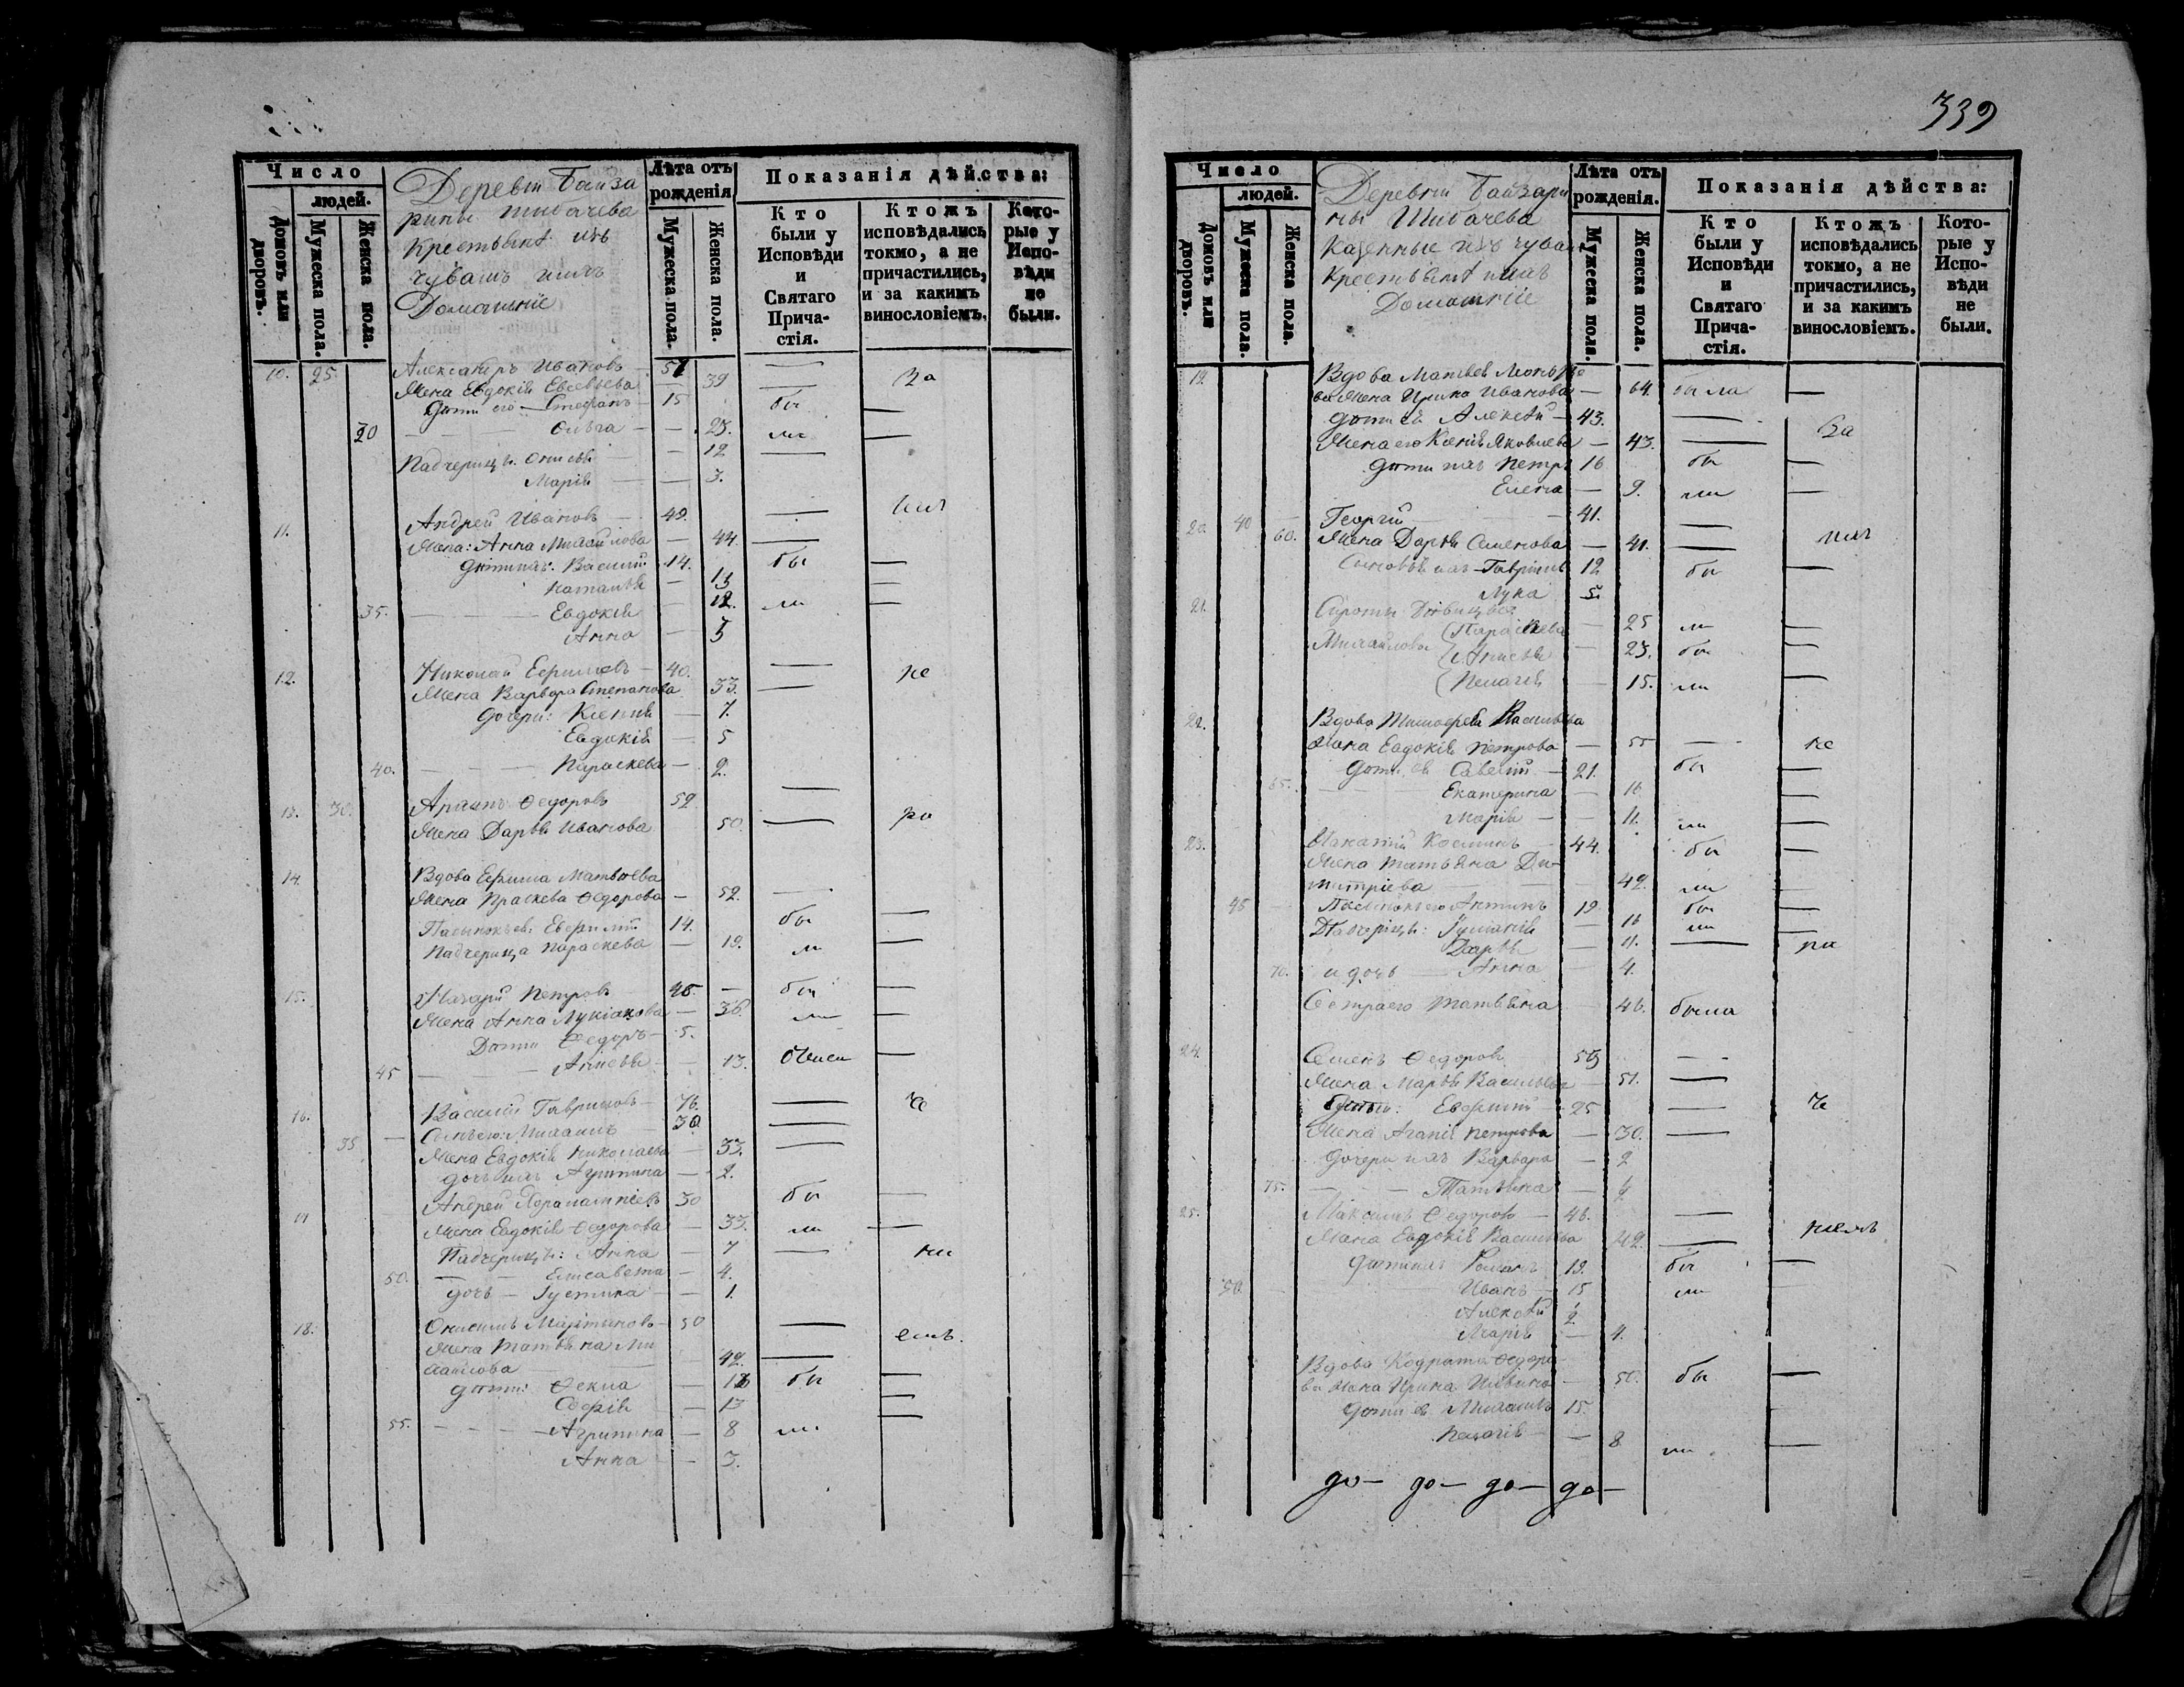 Число
людей.
Домовъ или дворовъ.
Мужеска пола.
Женска пола.
Деревни Байза
рины Шибачева
Крестьяне изъ
чувашъ и ихъ
Домашніе
Лѣта отъ
рожденія
Мужеска пола.
Женска пола.
Показанія дѣйства:
Кто были у Исповѣди и Святаго Причастія.
Ктожъ исповѣдались токмо, а не причастились, и за какимъ винословіемъ.
Которые у Исповѣди не были.
10. 25. Александръ Ивановъ —
Жена Евдокія Евсевьева — 39 — За
Дѣти его — Стефанъ — 15 бы —
Ольга — 23. ли —
Падчерицы. Онисья — 12 —
Марія — 3.
11. Андрей Ивановъ — 49. —
Жена: Анна Михайлова — 44. —
Дѣти ихъ: Василій 14. бы —
Наталья — 13 —
35. Евдокія — 12. ли —
Анна —
12. Николай Ефимовъ — 40. — не
Жена Варвара Степанова 33. —
Дочери: Ксенія — 7.
Евдокія — 5
40. Параскева — 2.
13. 30. Ѳедоровъ 52 —
Жена Дарья Иванова 50. — ра
14. Вдова Ефима Матвѣева
Жена Праскева Ѳедорова — 52. —
Пасынокъ ея: Евфимій 14. бы —
Падчерица Параскева — 19. ли —
15. Назарій Петровъ — — бы —
Жена Анна Лукіанова — 36. ли —
Дѣти Ѳедоръ — 5.
45 Анисья — 13. были —
16. Василій Гавриловъ — 76. — че
35 — Сынъ его: Михаилъ — —
Жена Евдокія Николаева — 33. —
дочь ихъ Агрипина — 2.
Андрей Харалампіевъ 30 бы —
Жена Евдокія Ѳедорова — 33. ли —
Падчерицы: Анна — 7 — ни
50. Елисавета — 4.
дочь — Іустина — 1.
18. Онисимъ Мартыновъ — 50 — емъ.
Жена Татьяна Ми
хайлова — 42. —
дѣти: Ѳекла — бы —
Софія — 13 —
55. Агрипина — 8 ли —
Анна — 3.
339
Число
людей.
Домовъ или дворовъ.
Мужеска пола.
Женска пола.
Деревни Байзари
ны Шибачева
Казенные изъ чуваш
Крестьяне и ихъ
Домашніе
Лѣта отъ
рожденія.
Мужеска пола.
Женска пола.
Показанія дѣйства:
Кто были у Исповѣди и Святаго Причастія.
Ктожъ исповѣдались токмо, а не причастились, и за какимъ винословіемъ.
Которые у Исповѣди не были.
19. Вдова Матвѣя
ва Жена Ирина Иванова — 64. была —
дѣти ея Алексѣй — 43. —
Жена его Ксенія Яковлева — 43. — За
дѣти ихъ Петръ 16 бы —
Елена — 9. ли —
20. 40 — Георгій — 41. —
60. Жена Дарья Семенова — 41. —
Сыновья ихъ — Гавріилъ 12 бы —
Лука 5.
21. Сироты Дѣвицы
Параскева — 25 ли —
Михайловы Анисья — 23. бы —
Пелагія — 15. ли —
22. Вдова Тимофея Васильева
Жена Евдокія Петрова — 55 — не
дѣти ея Савелій — 21. бы —
65. Екатерина — 16 —
Марія — 11. ли —
23. Козминъ — 44. бы —
Жена Татьяна Ди-
митріева — 42. ли —
45 — Племянникъ его Антипъ 19 бы —
Падчерицы: Іуліанія — 16 ли —
Дарья — 11. — ни
70. и дочь — Анна — 4.
Сестра его Татьяна — 46. была
24. Семенъ Ѳедоровъ —
Жена Марья Васильева — 51. —
Евфимій — 25 — че
Жена Агапія Петрова — 30. —
Дочери ихъ Варвара — 2
75. — Татьяна —
25. Максимъ Ѳедоровъ — 46. —
Жена Евдокія Васильева 42. —
Дѣти ихъ Романъ 19. бы —
50. — Иванъ — 15 ли —
Алексѣй
Марія — 4.
Вдова Кодрата Ѳедоро
ва Жена Ирина — 50. бы —
дѣти ея Михаилъ 15.
Пелагія — 8 ли —
до — до — до — до —